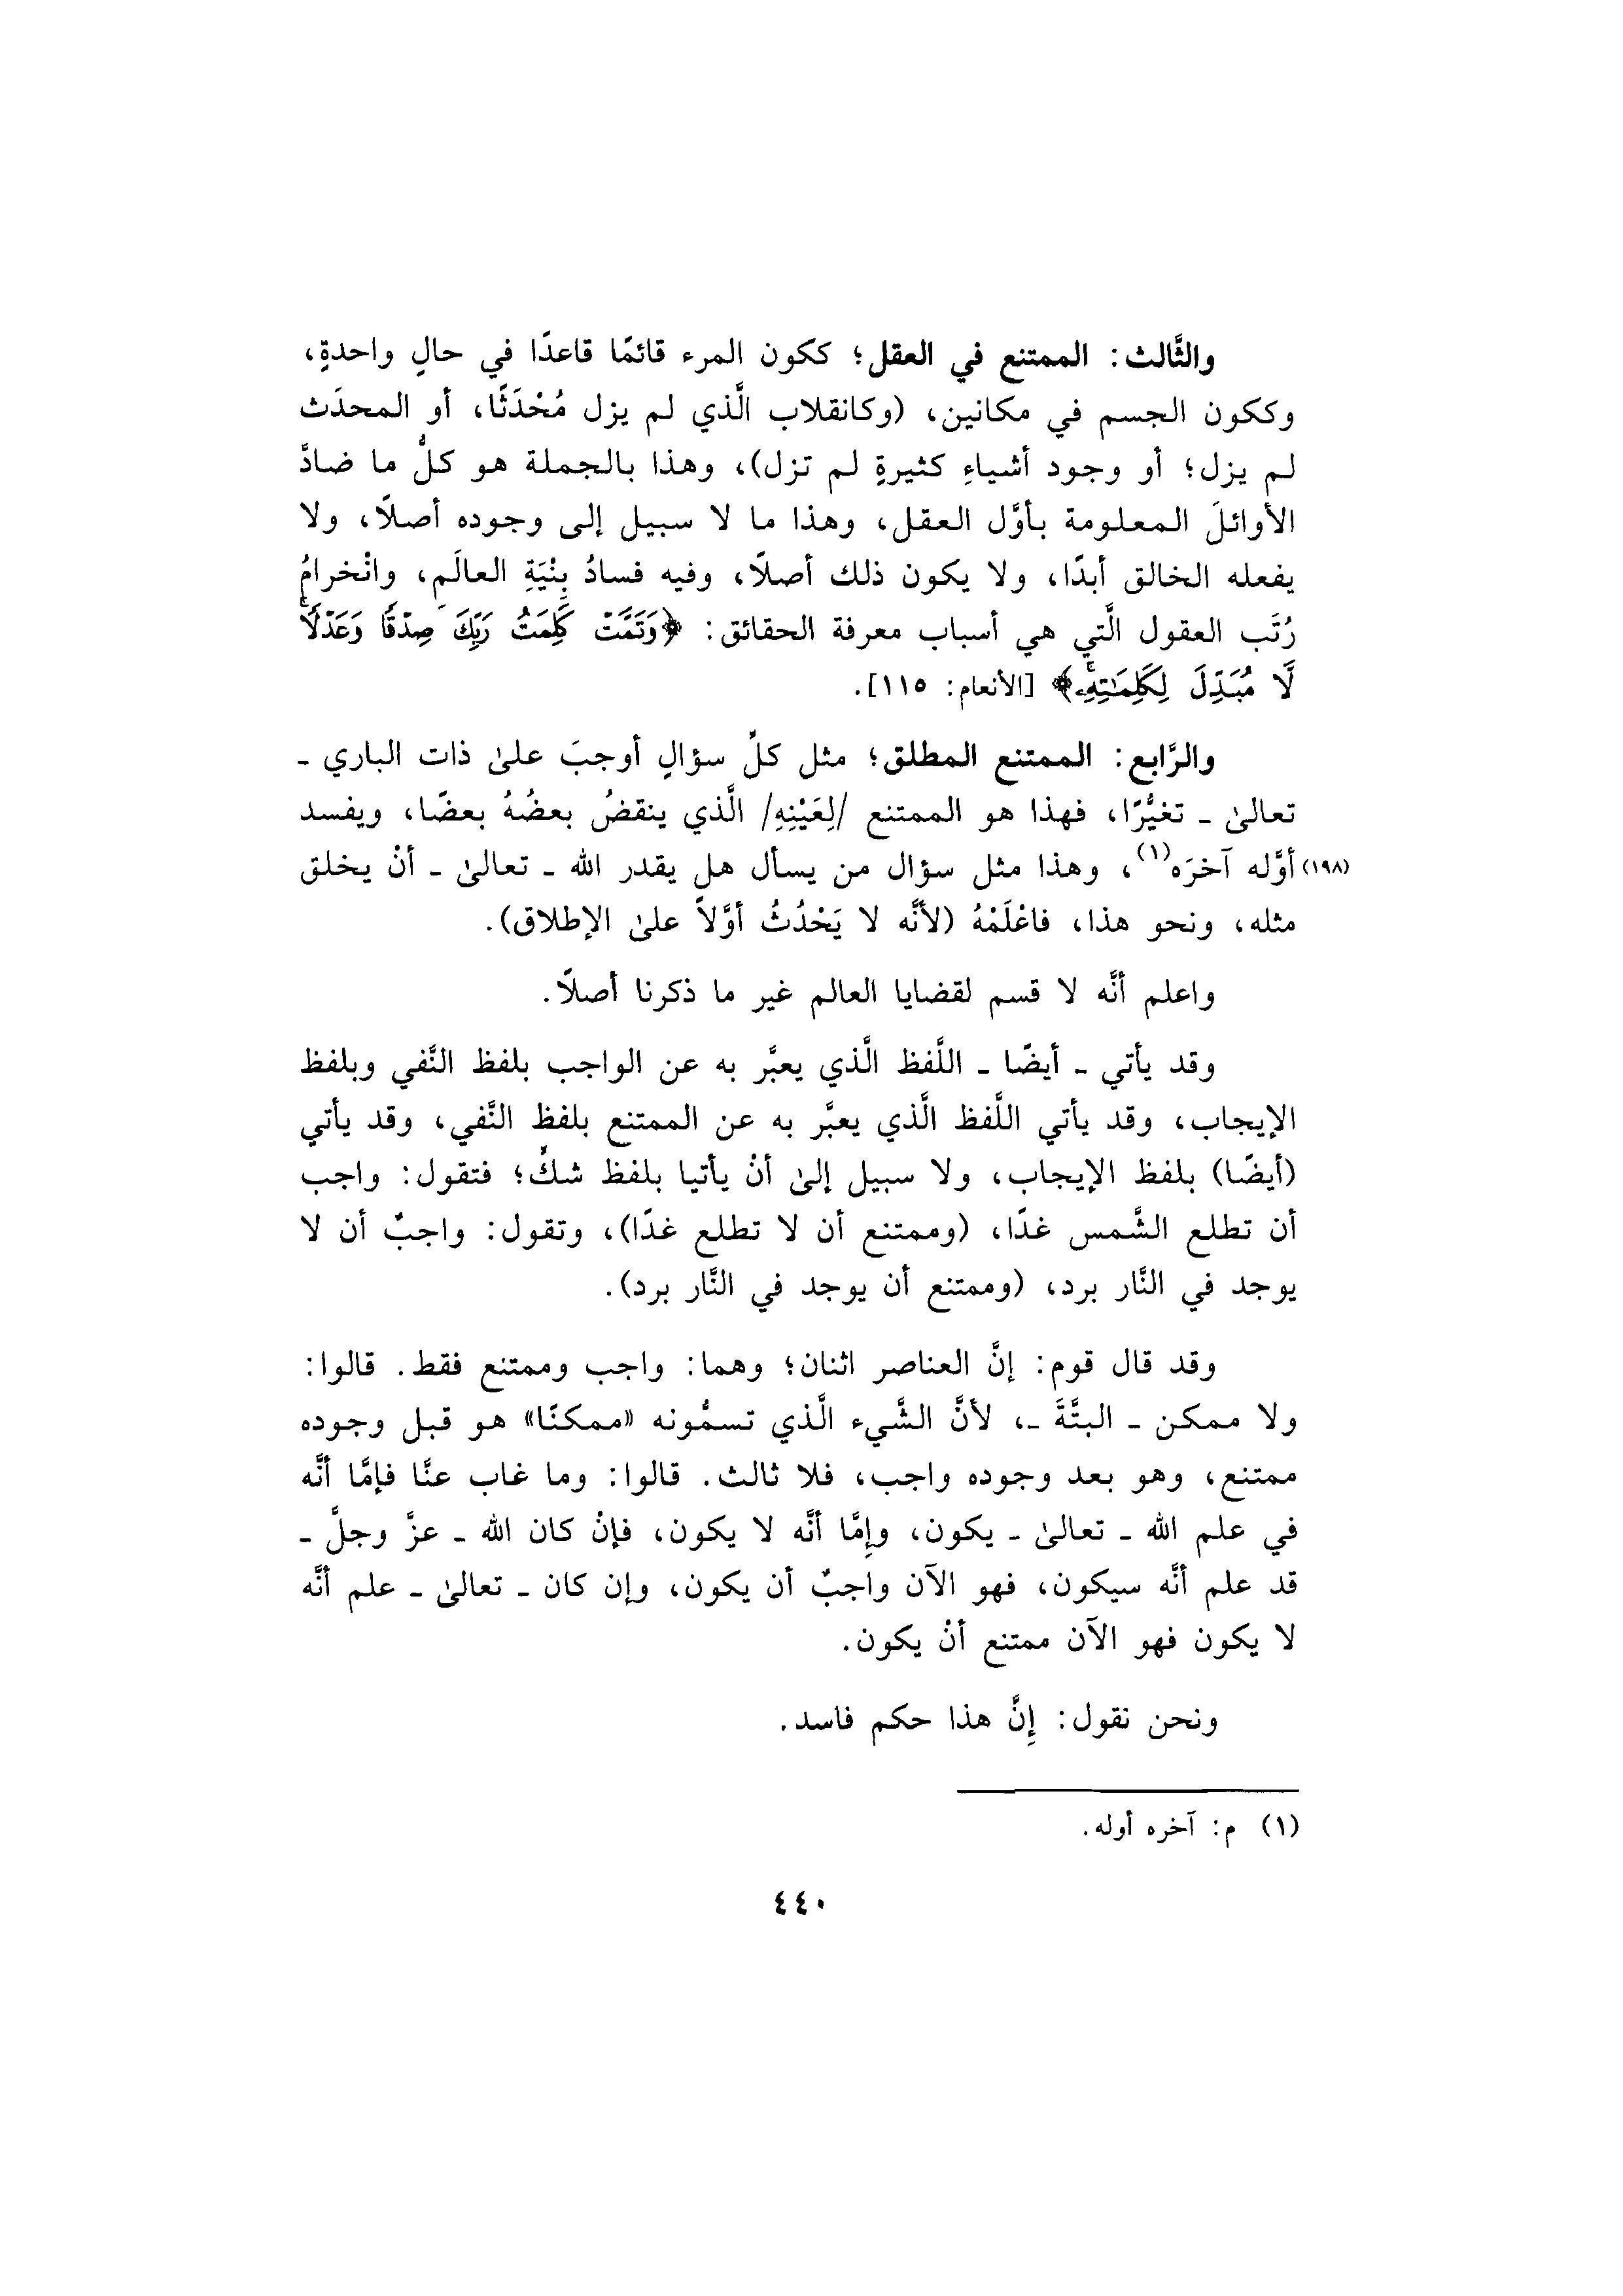 والثَّالث: الممتنع في العقل؛ ككون المرء قائمًا قاعدًا في حالٍ واحدةٍ،
وككون الجسم في مكانين، (وكانقلاب الَّذي لم يزل مُحْدَثًا، أو المحدَث
لم يزل؛ أو وجود أشياءِ كثيرةٍ لم تزل)، وهذا بالجملة هو كلُّ ما ضادَّ
الأوائلَ المعلومة بأوَّل العقل، وهذا ما لا سبيل إلى وجوده أصلًا، ولا
يفعله الخالق أبدًا، ولا يكون ذلك أصلًا، وفيه فسادُ بِنْيَةِ العالَم، وانْخرامُ
رُتَب العقول الَّتي هي أسباب معرفة الحقائق: ﴿وَتَمَّتْ كَلِمَتُ رَبِّكَ صِدْقًا وَعَدْلًا
لَّا مُبَدِّلَ لِكَلِمَـٰتِهِۦ﴾ [الأنعام: ١١٥].
والرَّابع: الممتنع المطلق؛ مثل كلِّ سؤالٍ أوجبَ علىٰ ذات الباري ـ
تعالىٰ ـ تغيُّرًا، فهذا هو الممتنع /لِعَيْنِهِ/ الَّذي ينقضُ بعضُهُ بعضًا، ويفسد
(١٩٨) أوَّله آخرَه(١)، وهذا مثل سؤال من يسأل هل يقدر الله ـ تعالىٰ ـ أنْ يخلق
مثله، ونحو هذا، فاعْلَمْهُ (لأنَّه لا يَحْدُثُ أوَّلاً علىٰ الإطلاق).
واعلم أنَّه لا قسم لقضايا العالم غير ما ذكرنا أصلًا.
وقد يأتي ـ أيضًا ـ اللَّفظ الَّذي يعبَّر به عن الواجب بلفظ النَّفي وبلفظ
الإيجاب، وقد يأتي اللَّفظ الَّذي يعبَّر به عن الممتنع بلفظ النَّفي، وقد يأتي
(أيضًا) بلفظ الإيجاب، ولا سبيل إلىٰ أنْ يأتيا بلفظ شكٍّ؛ فتقول: واجب
أن تطلع الشَّمس غدًا، (وممتنع أن لا تطلع غدًا)، وتقول: واجبٌ أن لا
يوجد في النَّار برد، (وممتنع أن يوجد في النَّار برد).
وقد قال قوم: إنَّ العناصر اثنان؛ وهما: واجب وممتنع فقط. قالوا:
ولا ممكن ـ البتَّةَ ـ، لأنَّ الشَّيء الَّذي تسمُّونه «ممكنًا» هو قبل وجوده
ممتنع، وهو بعد وجوده واجب، فلا ثالث. قالوا: وما غاب عنَّا فإمَّا أنَّه
في علم الله ـ تعالىٰ ـ يكون، وإمَّا أنَّه لا يكون، فإنْ كان الله ـ عزَّ وجلَّ ـ
قد علم أنَّه سيكون، فهو الآن واجبٌ أن يكون، وإن كان ـ تعالىٰ ـ علم أنَّه
لا يكون فهو الآن ممتنع أنْ يكون.
ونحن نقول: إنَّ هذا حكم فاسد.
(١) م: آخره أوله.
٤٤٠